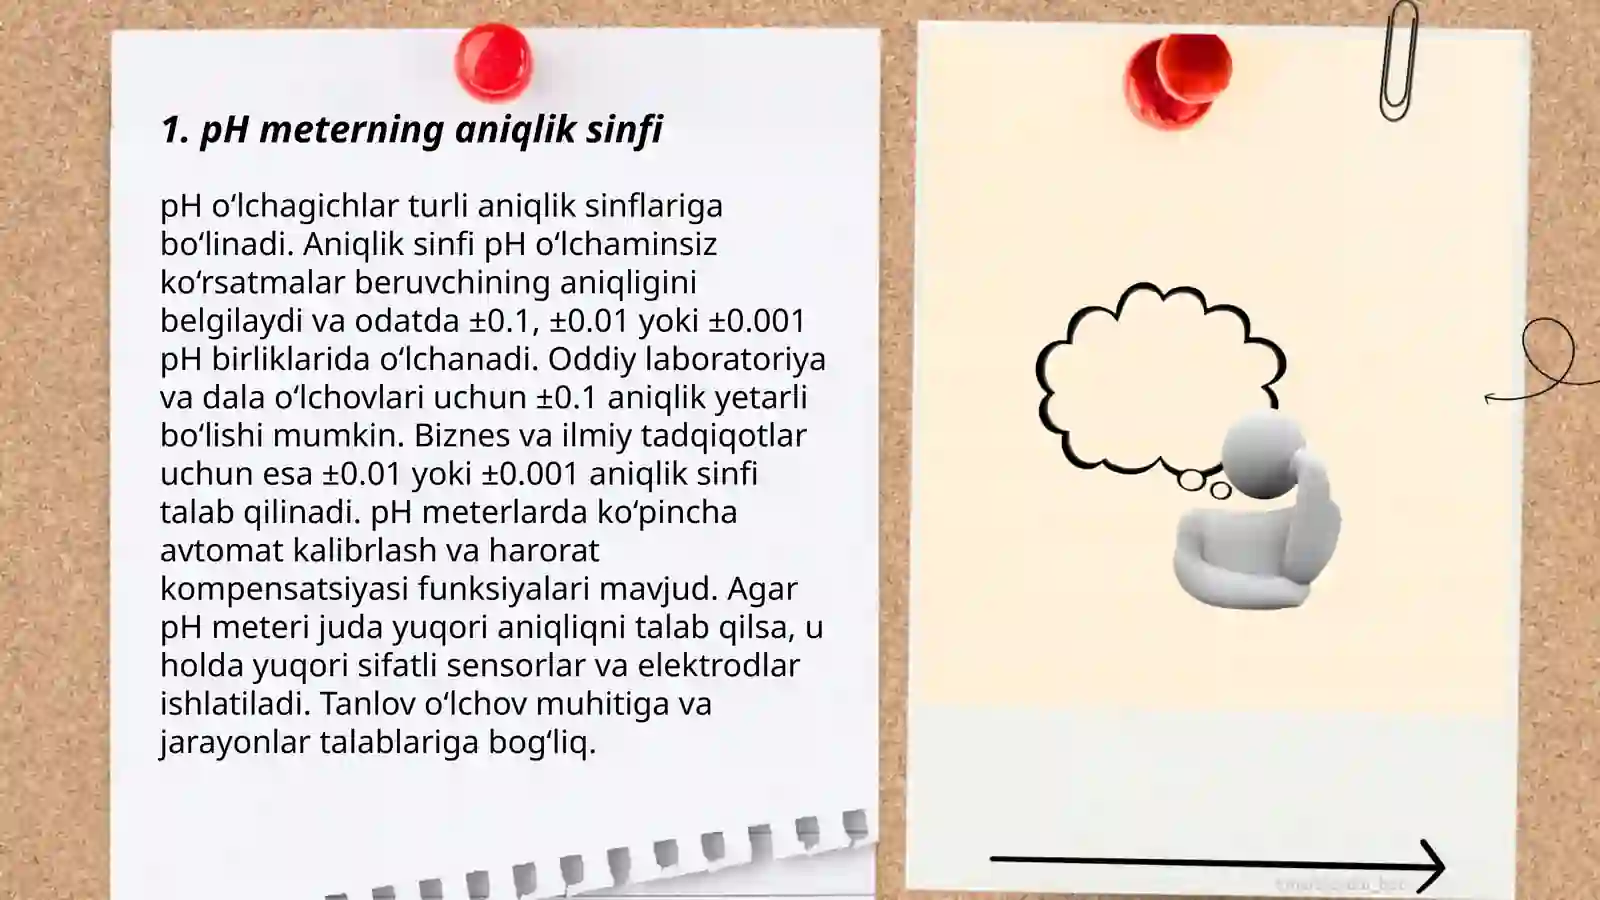 1. pH meterning aniqlik sinfi
pH o‘lchagichlar turli aniqlik sinflariga
bo‘linadi. Aniqlik sinfi pH o‘lchaminsiz
ko‘rsatmalar beruvchining aniqligini
belgilaydi va odatda ±0.1, ±0.01 yoki ±0.001
pH birliklarida o‘lchanadi. Oddiy laboratoriya
va dala o‘lchovlari uchun ±0.1 aniqlik yetarli
bo‘lishi mumkin. Biznes va ilmiy tadqiqotlar
uchun esa ±0.01 yoki ±0.001 aniqlik sinfi
talab qilinadi. pH meterlarda ko‘pincha
avtomat kalibrlash va harorat
kompensatsiyasi funksiyalari mavjud. Agar
pH meteri juda yuqori aniqliqni talab qilsa, u
holda yuqori sifatli sensorlar va elektrodlar
ishlatiladi. Tanlov o‘lchov muhitiga va
jarayonlar talablariga bog‘liq.